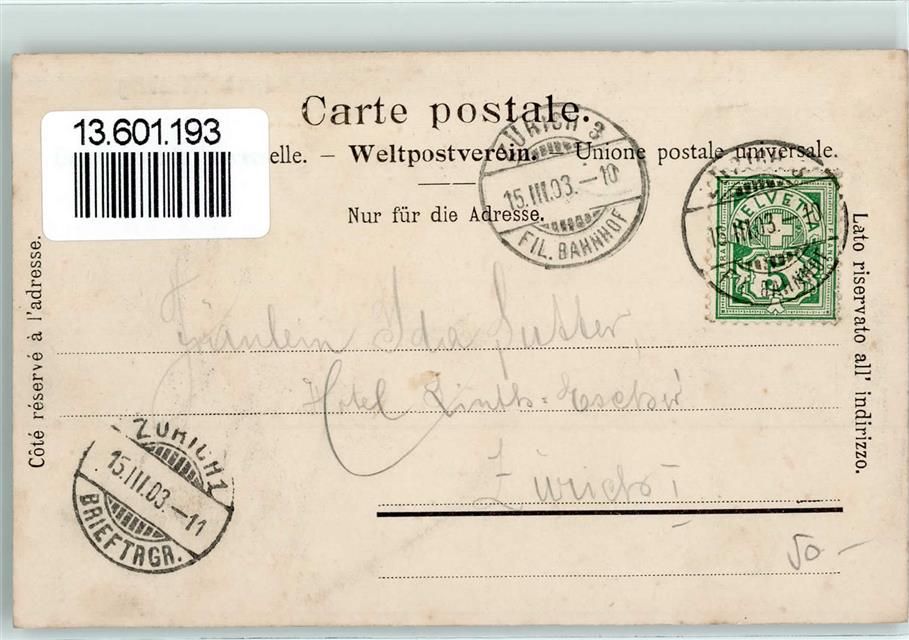 13.601.193
Carte postale.
elle. – Weltpostverein. Unione postale universale.
Nur für die Adresse.
Côté réservé à l'adresse.
Lato riservato all' indirizzo.
ZÜRICH 3
15.III.03.–10
FIL. BAHNHOF
HELVETIA
FRANCO
5
III.03.–10
BAHNHOF
Fräulein Ida Sutter,
Hotel Linth-Escher
Zürich I
ZÜRICH 1
15.III.03.–11
BRIEFTRGR.
50 –